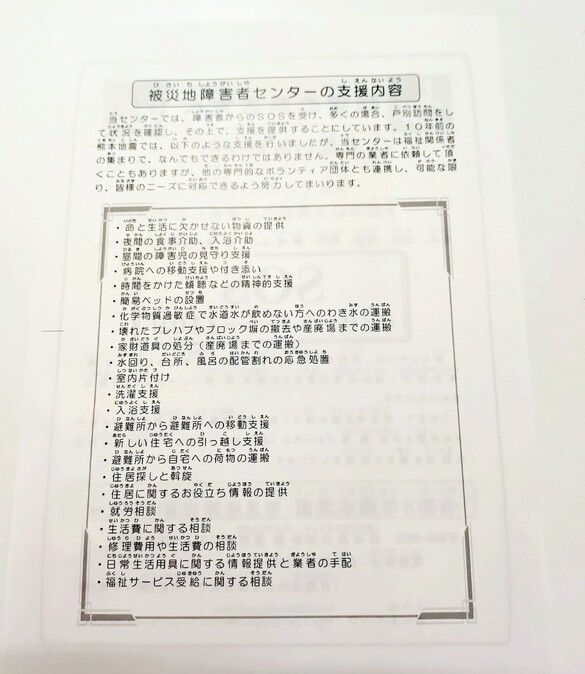 被災地障害者センターの支援内容
当センターでは、障害者からのSOSを受け、多くの場合、戸別訪問をし
て状況を確認し、その上で、支援を提供することにしています。10年前の
熊本地震では、以下のような支援を行いましたが、当センターは福祉関係者
の集まりで、なんでもできるわけではありません。専門の業者に依頼して頂
くこともありますが、他の専門的なボランティア団体とも連携し、可能な限
り、皆様のニーズに対応できるよう努力してまいります。
・命と生活に欠かせない物資の提供
・夜間の食事介助、入浴介助
・昼間の障害児の見守り支援
・病院への移動支援や付き添い
・時間をかけた傾聴などの精神的支援
・簡易ベッドの設置
・化学物質過敏症で水道水が飲めない方へのわき水の運搬
・壊れたプレハブやブロック塀の撤去や産廃場までの運搬
・家財道具の処分（産廃場までの運搬）
・水回り、台所、風呂の配管割れの応急処置
・室内片付け
・洗濯支援
・入浴支援
・避難所から避難所への移動支援
・新しい住宅への引っ越し支援
・避難所から自宅への荷物の運搬
・住居探しと斡旋
・住居に関するお役立ち情報の提供
・就労相談
・生活費に関する相談
・修理費用や生活費の相談
・日常生活用具に関する情報提供と業者の手配
・福祉サービス受給に関する相談